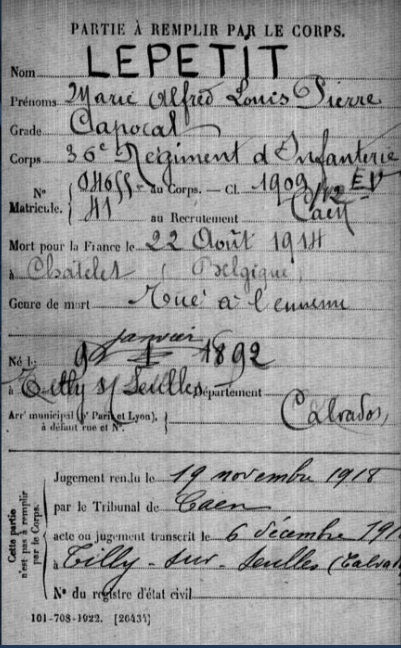 PARTIE À REMPLIR PAR LE CORPS.
Nom LEPETIT
Prénoms Marie Alfred Louis Pierre
Grade Caporal
Corps 36e Régiment d'Infanterie
N° 04655 au Corps. — Cl. 1909/12 EV
Matricule. 41 au Recrutement Caen
Mort pour la France le 22 Août 1914
à Châtelet (Belgique)
Genre de mort Tué à l'ennemi
janvier
Né le 9 1 1892
à Tilly s/ Seulles Département Calvados
Arrt municipal (pr Paris et Lyon),
à défaut rue et N°.
Cette partie
n'est pas à remplir
par le Corps.
Jugement rendu le 19 novembre 1918
par le Tribunal de Caen
acte ou jugement transcrit le 6 décembre 191
à Tilly-sur-Seulles (Calva
N° du registre d'état civil
101-708-1922. [26434]